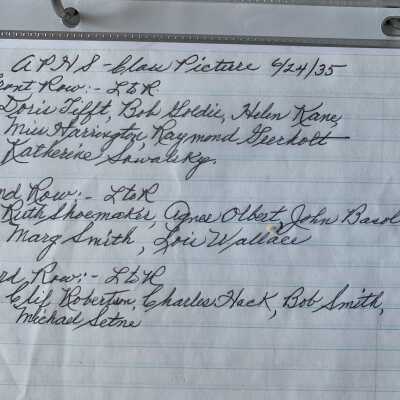 A P H S - Class Picture 6/24/35
Front Row:- L to R.
Doris Tifft, Bob Goldie, Helen Kane,
Miss Harrington, Raymond
Katherine Sowalsky.
nd Row:- L to R
Ruth Shoemaker, Agnes Olbert, John Basol
Marg Smith, Lois Wallace
rd Row:- L to R
Clif Robertson, Charles Hack, Bob Smith,
Michael Setne